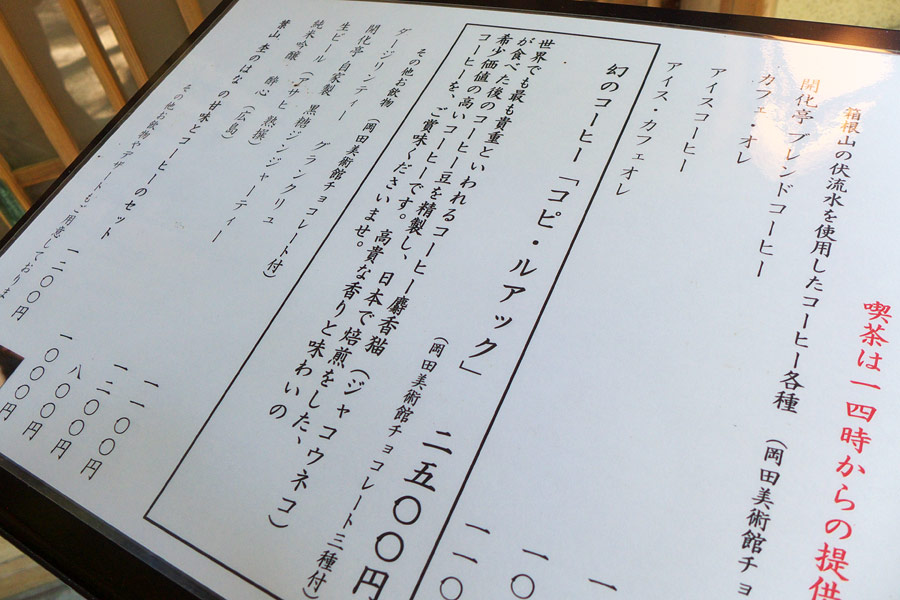 喫茶は一四時からの提供
箱根山の伏流水を使用したコーヒー各種 (岡田美術館チョ
開化亭 ブレンドコーヒー
カフェ・オレ 一
アイスコーヒー 一〇
アイス・カフェオレ 一一〇
幻のコーヒー「コピ・ルアック」 二五〇〇円
(岡田美術館チョコレート三種付)
世界でも最も貴重といわれるコーヒー 麝香猫 (ジャコウネコ)
が食べた後のコーヒー豆を精製し、日本で焙煎をした、
希少価値の高いコーヒーです。高貴な香りと味わいの
コーヒーを、ご賞味くださいませ。
その他お飲物 (岡田美術館チョコレート付)
ダージリンティー 一一〇〇円
開化亭自家製 黒糖ジンジャーティー 一二〇〇円
生ビール (アサヒ 熟撰) 八〇〇円
純米吟醸 酔心 (広島) 一〇〇〇円
葉山 杢のはな の甘味とコーヒー のセット 一二〇〇円
その他お飲物やデザートもご用意しておりま